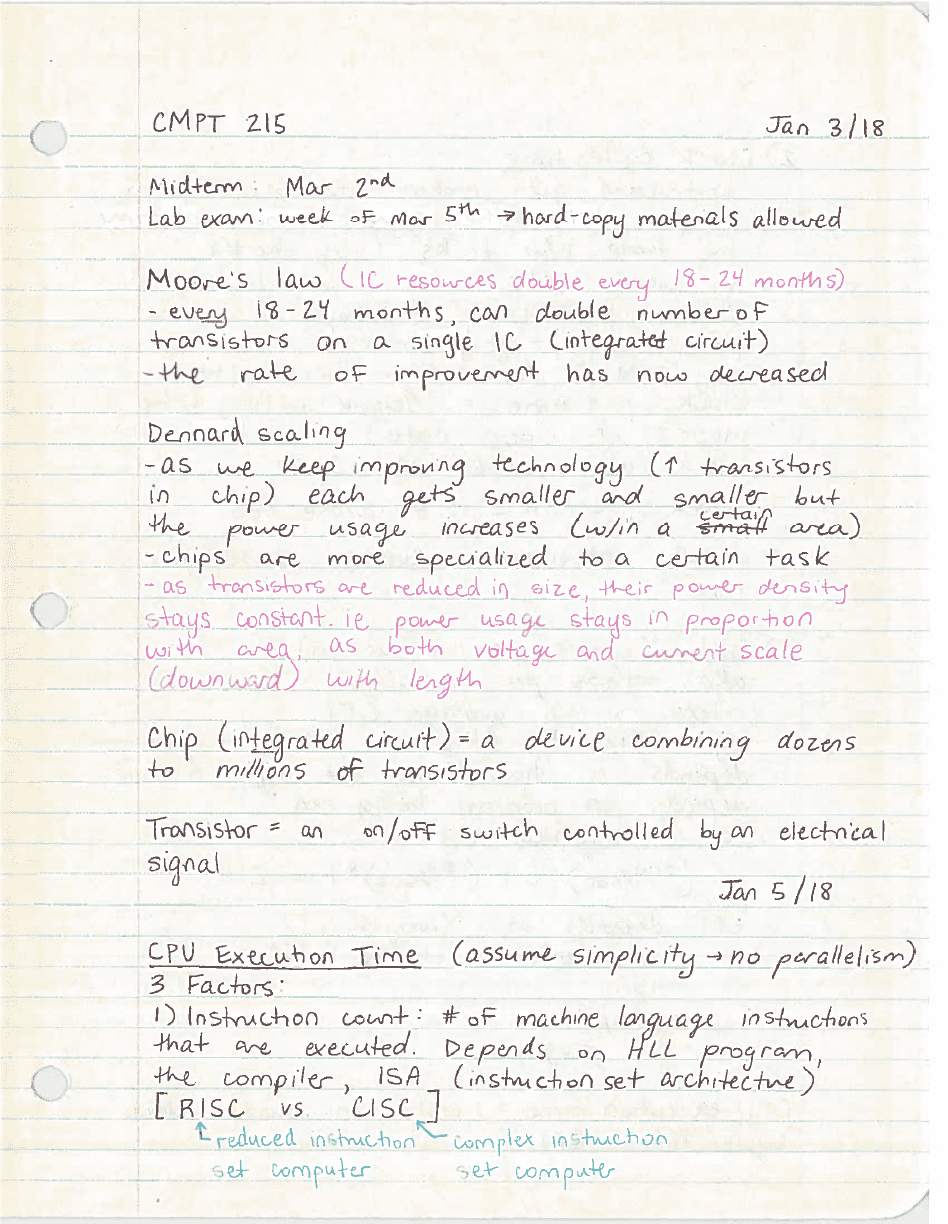 CMPT 215 Jan 3/18
Midterm: Mar 2nd
Lab exam: week of Mar 5th → hard-copy materials allowed
Moore's law (IC resources double every 18-24 months)
- every 18-24 months, can double number of
transistors on a single IC (integrated circuit)
- the rate of improvement has now decreased
Dennard scaling
- as we keep improving technology (↑ transistors
in chip) each gets smaller and smaller but
the power usage increases (w/in a small certain area)
- chips are more specialized to a certain task
- as transistors are reduced in size, their power density
stays constant. ie power usage stays in proportion
with area, as both voltage and current scale
(downward) with length
Chip (integrated circuit) = a device combining dozens
to millions of transistors
Transistor = an on/off switch controlled by an electrical
signal
Jan 5/18
CPU Execution Time (assume simplicity → no parallelism)
3 Factors:
1) Instruction count: # of machine language instructions
that are executed. Depends on HLL program,
the compiler, ISA (instruction set architecture)
[RISC vs. CISC]
reduced instruction complex instruction
set computer set computer